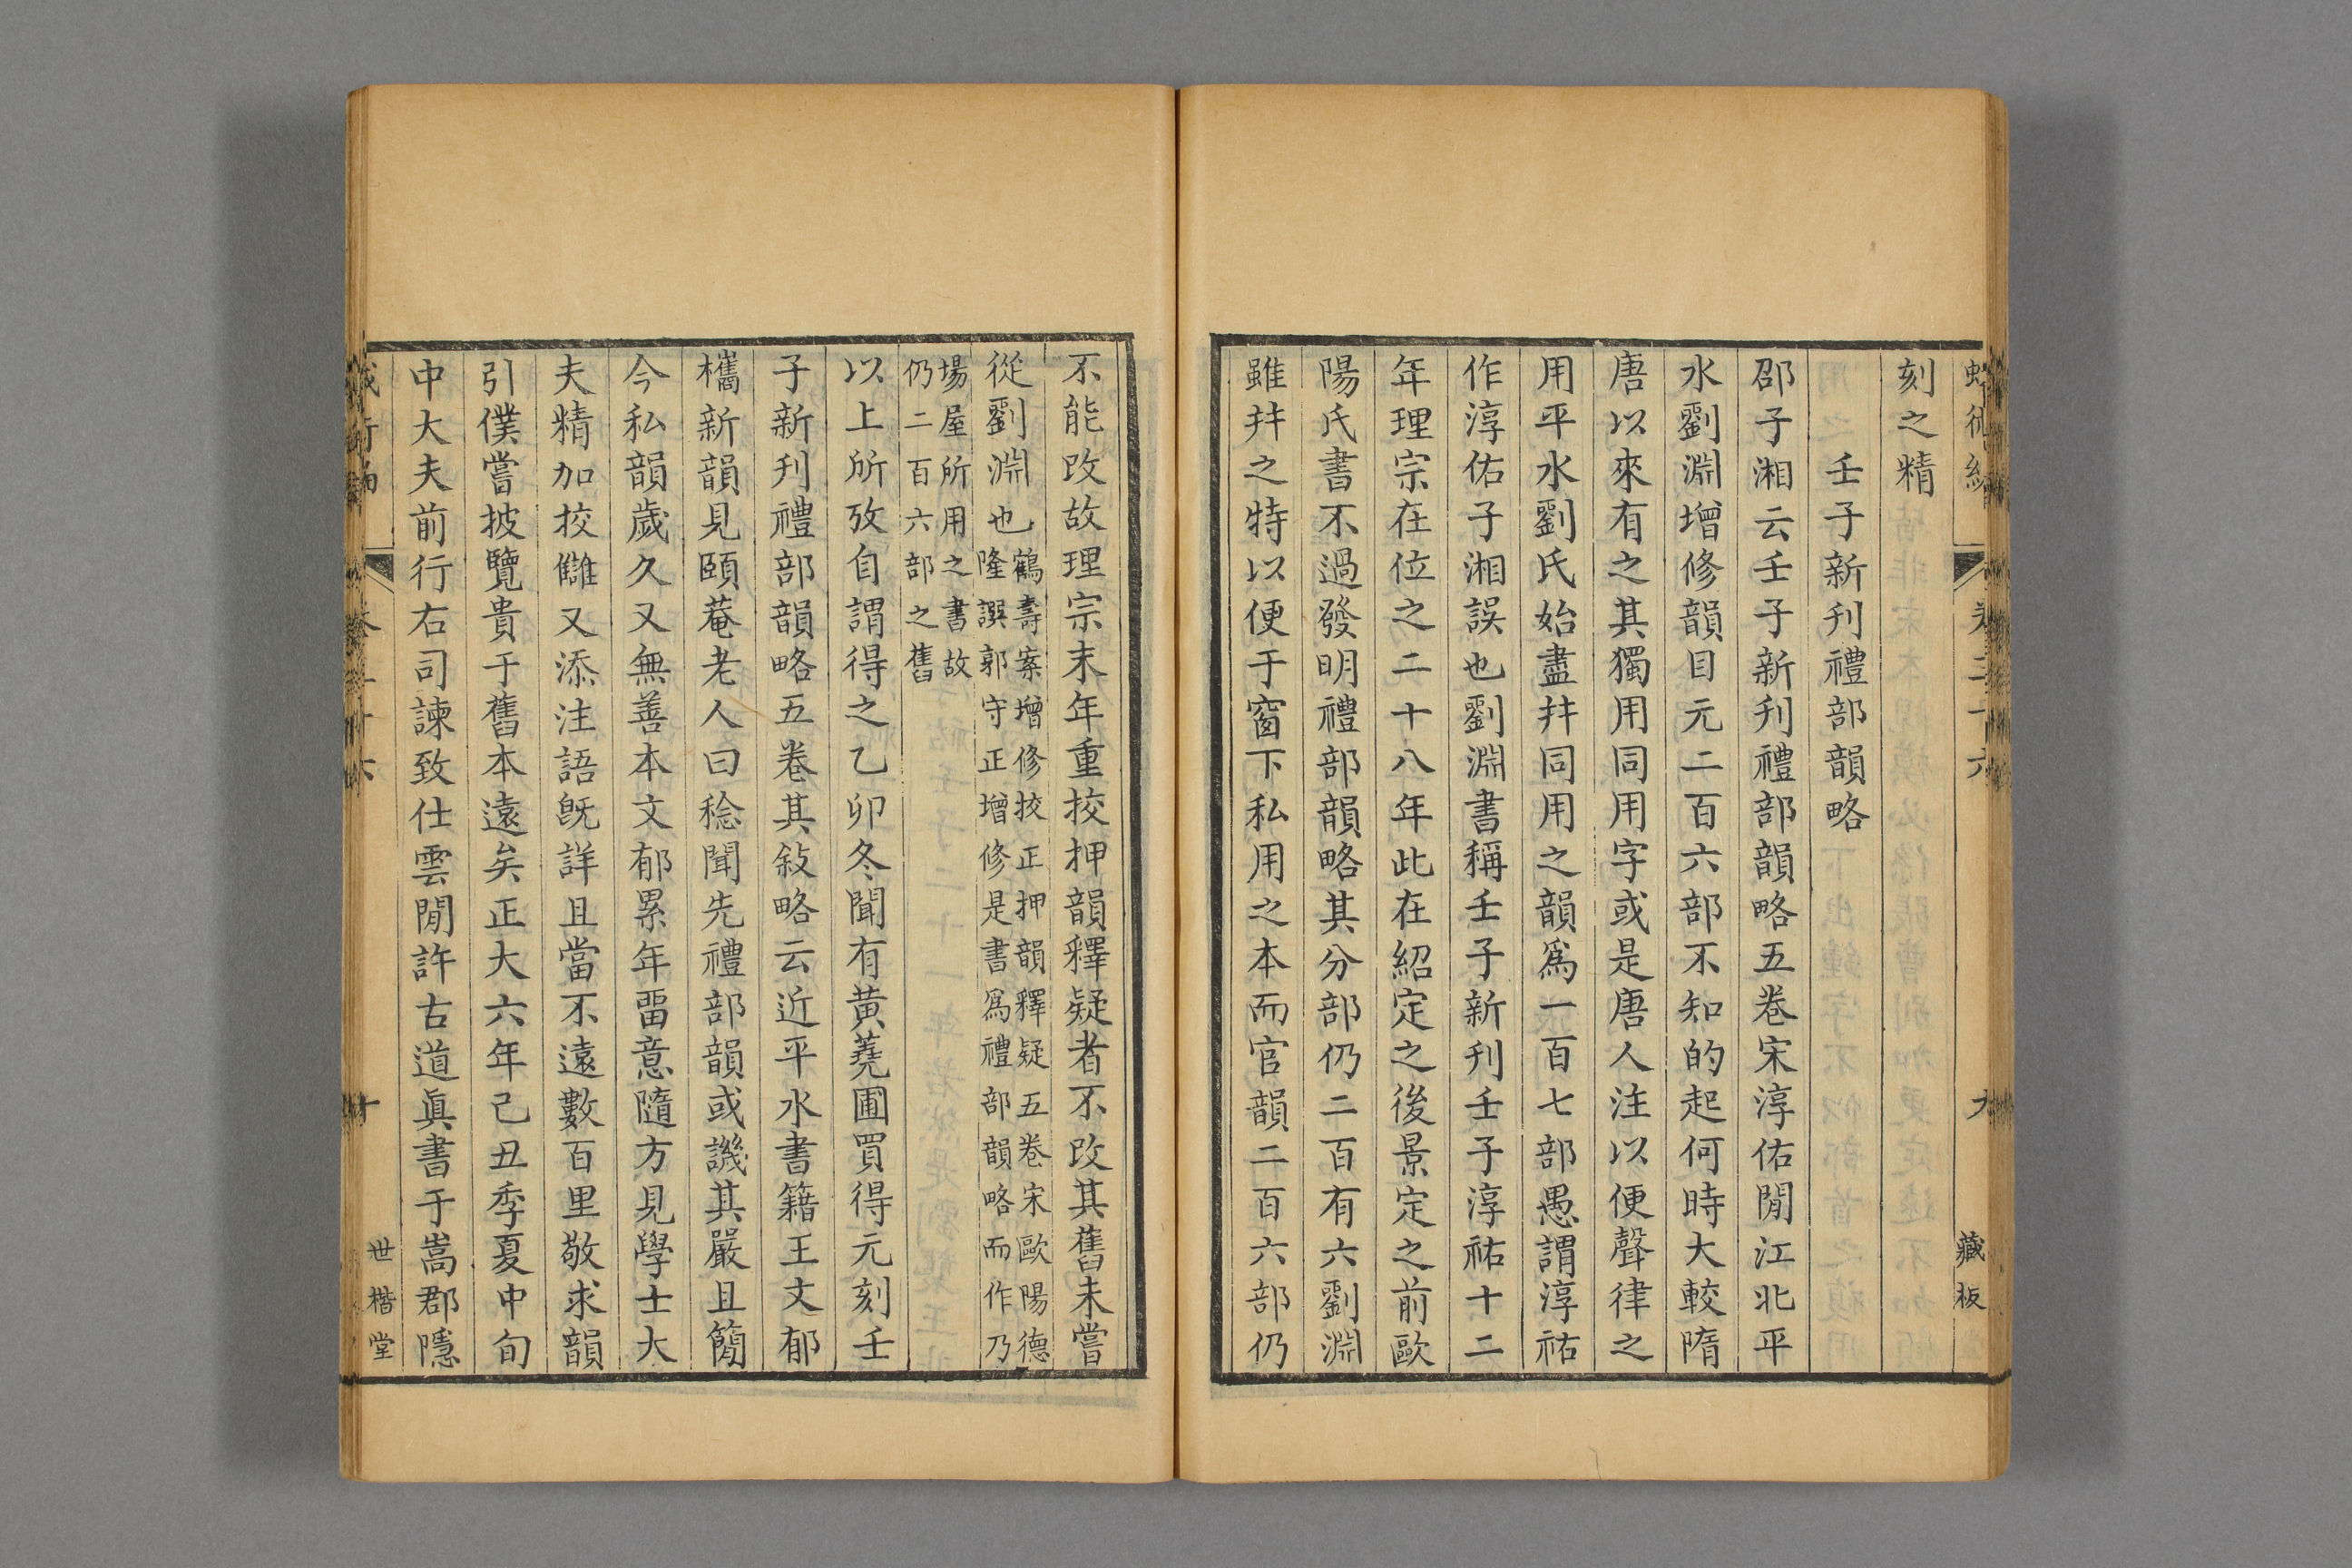 刻之精
壬子新刊禮部韻略
邵子湘云壬子新刊禮部韻略五卷宋淳佑閒江北平
水劉淵增修韻目元二百六部不知的起何時大較隋
唐以來有之其獨用同用字或是唐人注以便聲律之
用平水劉氏始盡幷同用之韻爲一百七部愚謂淳祐
作淳佑子湘誤也劉淵書稱壬子新刊壬子淳祐十二
年理宗在位之二十八年此在紹定之後景定之前歐
陽氏書不過發明禮部韻略其分部仍二百有六劉淵
雖幷之特以便于窗下私用之本而官韻二百六部仍
不能改故理宗末年重挍押韻釋疑者不改其舊未嘗
從劉淵也
鶴壽案增修挍正押韻釋疑五卷宋歐陽德
隆譔郭守正增修是書爲禮部韻略而作乃
場屋所用之書故
仍二百六部之舊
以上所攷自謂得之乙卯冬聞有黄蕘圃買得元刻壬
子新刊禮部韻略五卷其敍略云近平水書籍王文郁
㩦新韻見頤菴老人曰稔聞先禮部韻或譏其嚴且簡
今私韻歲久又無善本文郁累年畱意隨方見學士大
夫精加挍讎又添注語旣詳且當不遠數百里敬求韻
引僕嘗披覽貴于舊本遠矣正大六年己丑季夏中旬
中大夫前行右司諫致仕雲閒許古道眞書于嵩郡隱
藏板
世楷堂